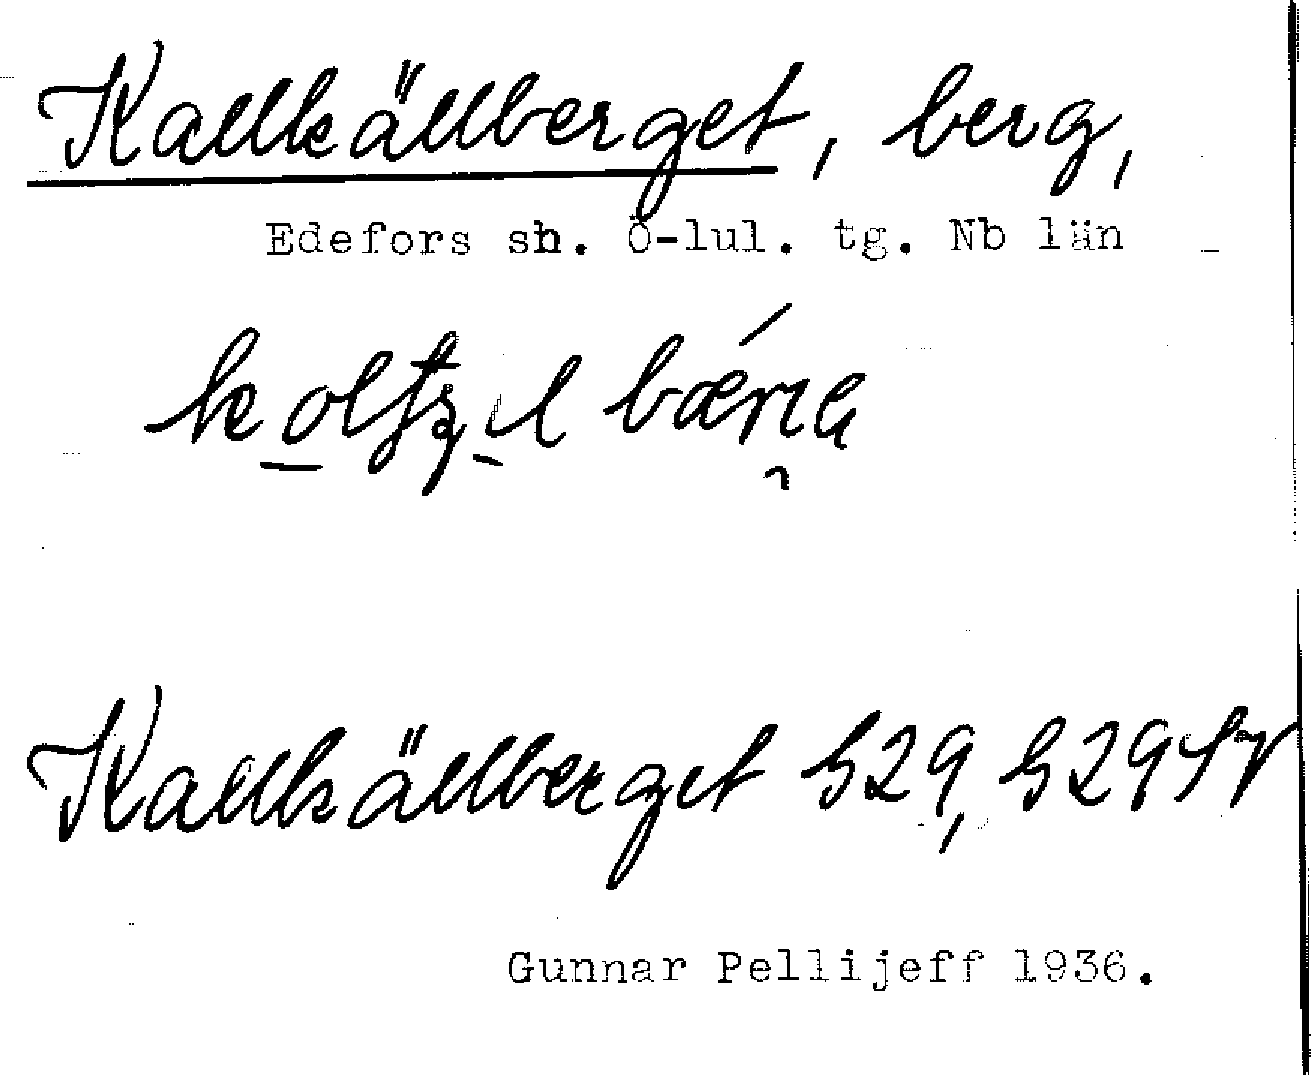 Kallkällberget, berg,
Edefors sn. Ö-lul. tg. Nb län
Kallkällberget h29, h29SV
Gunnar Pellijeff 1936.